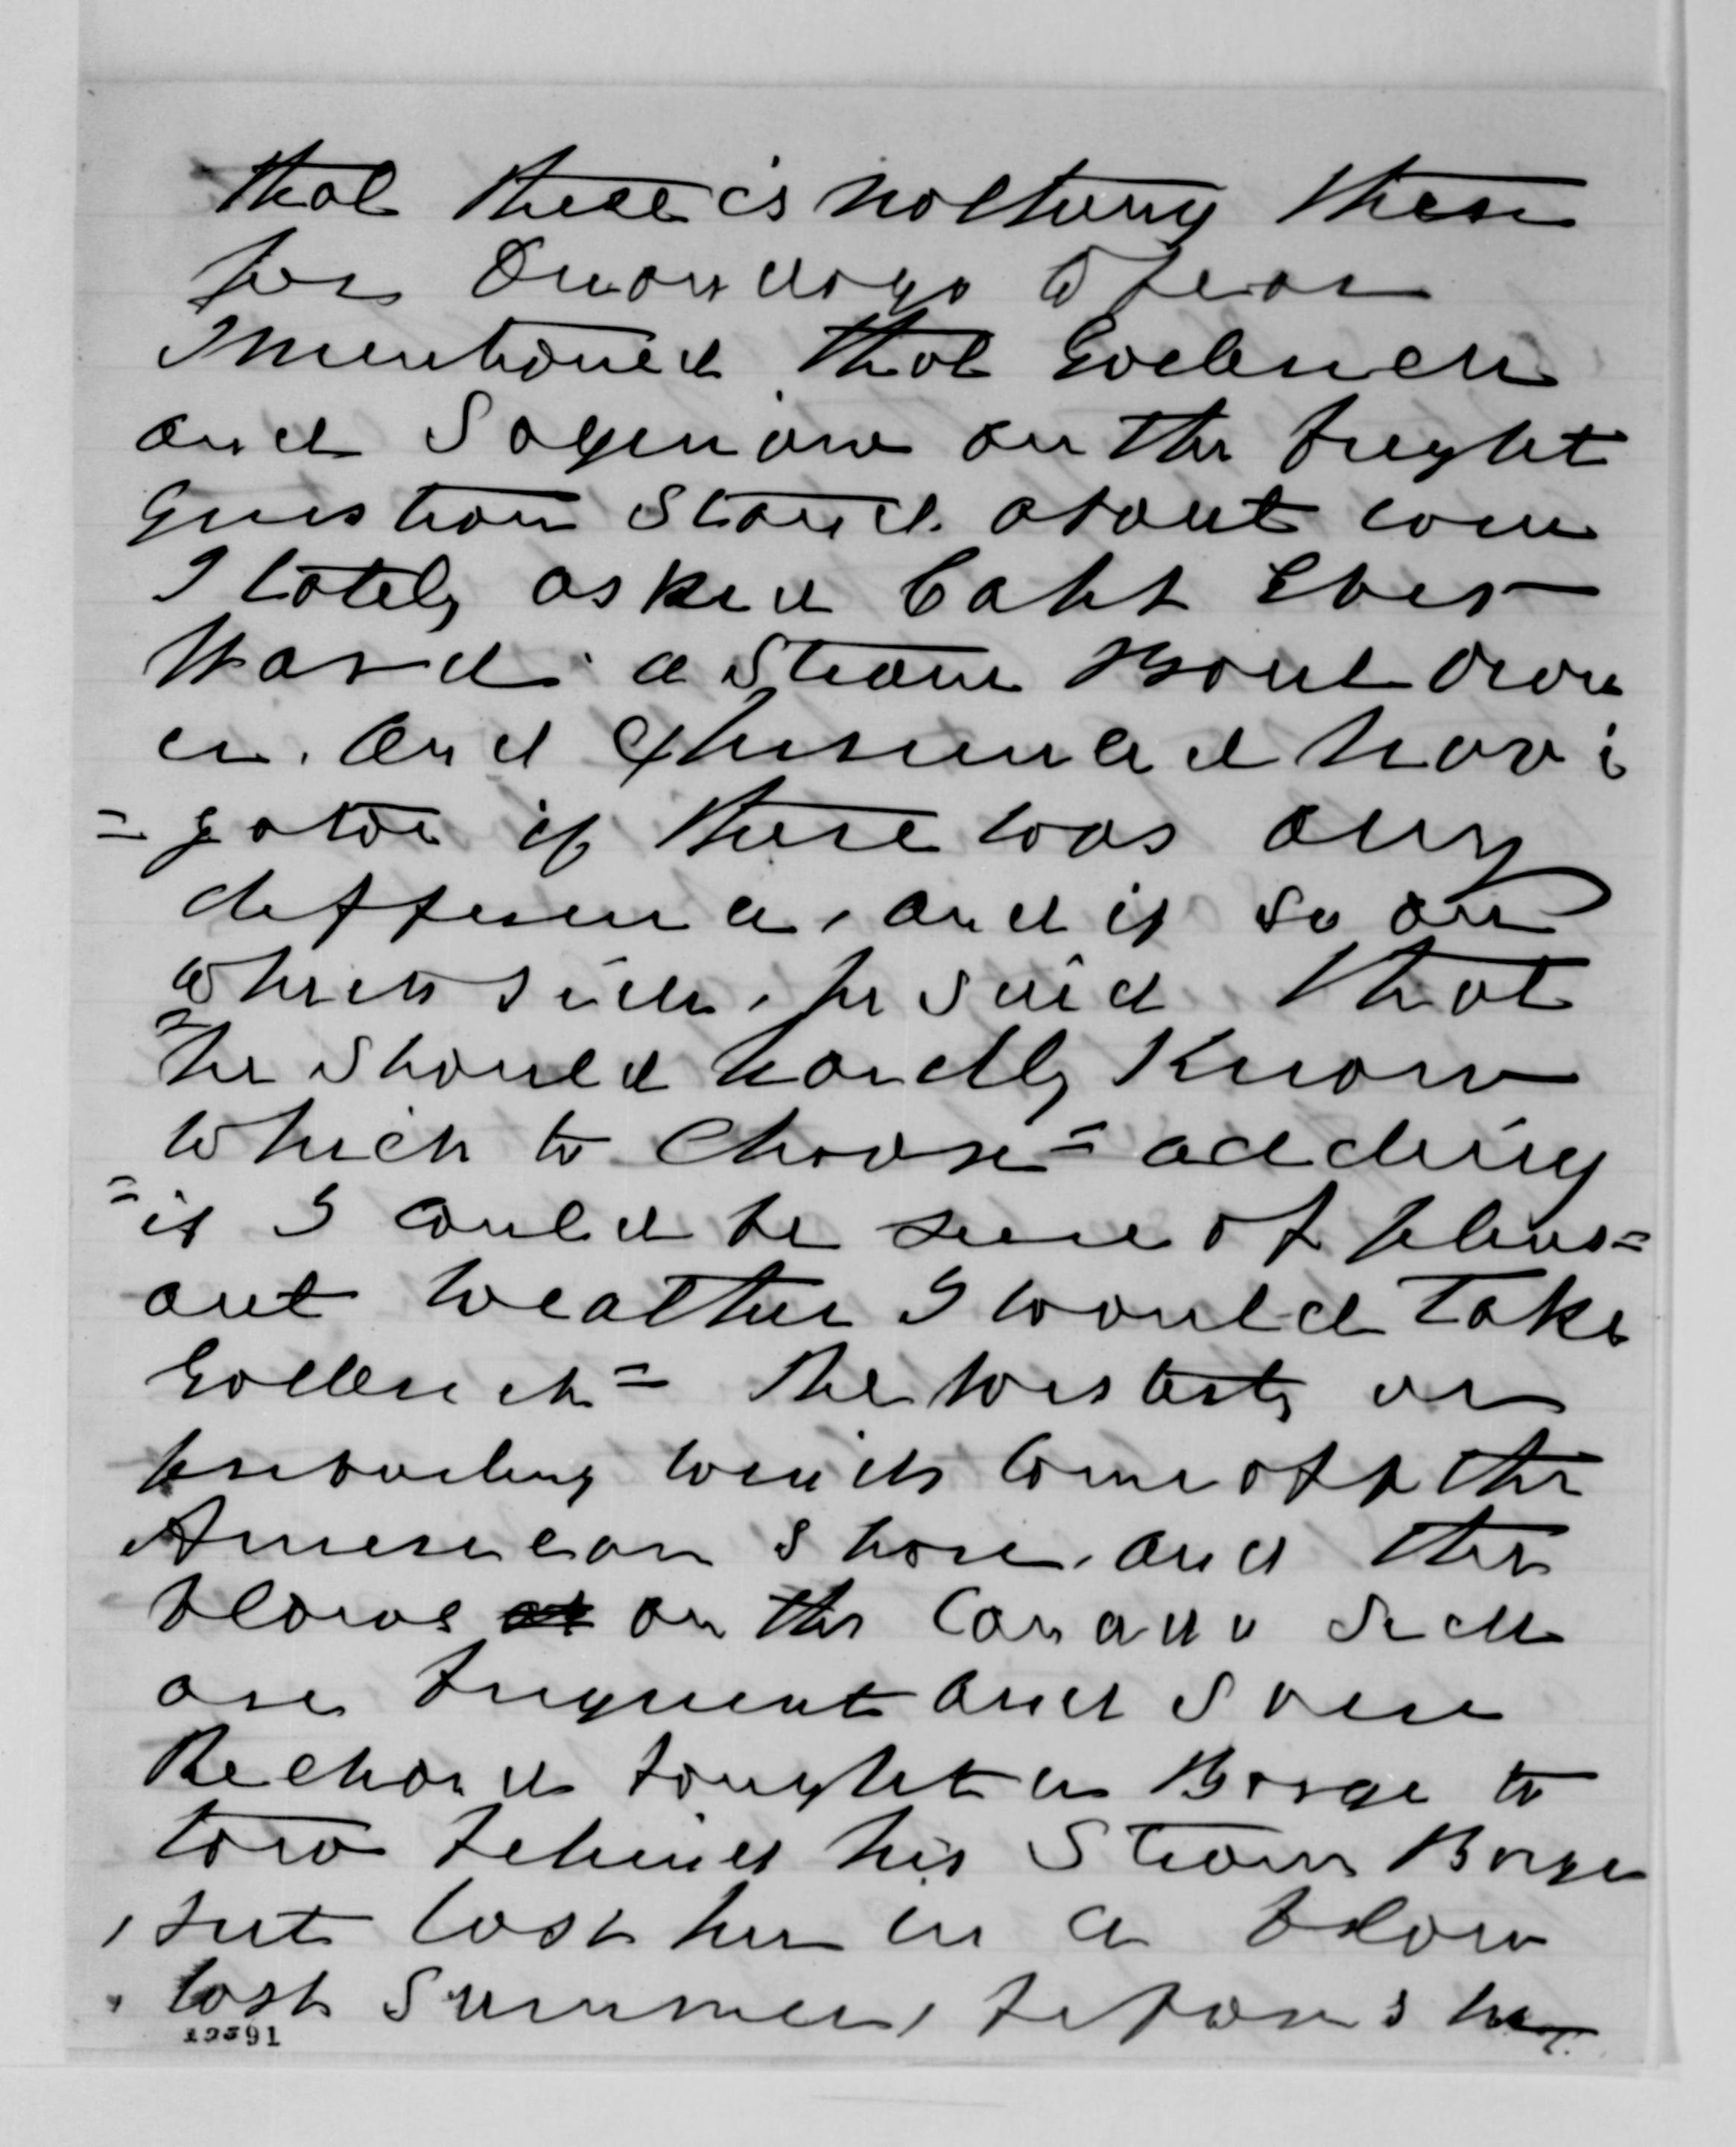 that there is nothing there
for Onondaga to fear
I mentioned that Goderich
and Saginaw on the freight
question stand about even
I lately asked Capt Eber
Ward: a Steam Boat own
er. and experienced navi
= gator if there was any
difference, and if so on
which side, he said that
"he should hardly know
which to choose = adding
"if I could be sure of pleas=
ant weather I would take
Goderich = The westerly or
prevailing winds come off the
American shore, and the
blows at on the Canada side
are frequent and severe
He chard bought a Barge to
tow behind his Steam Barge
, but lost her in a blow
last Summer, before she
19591